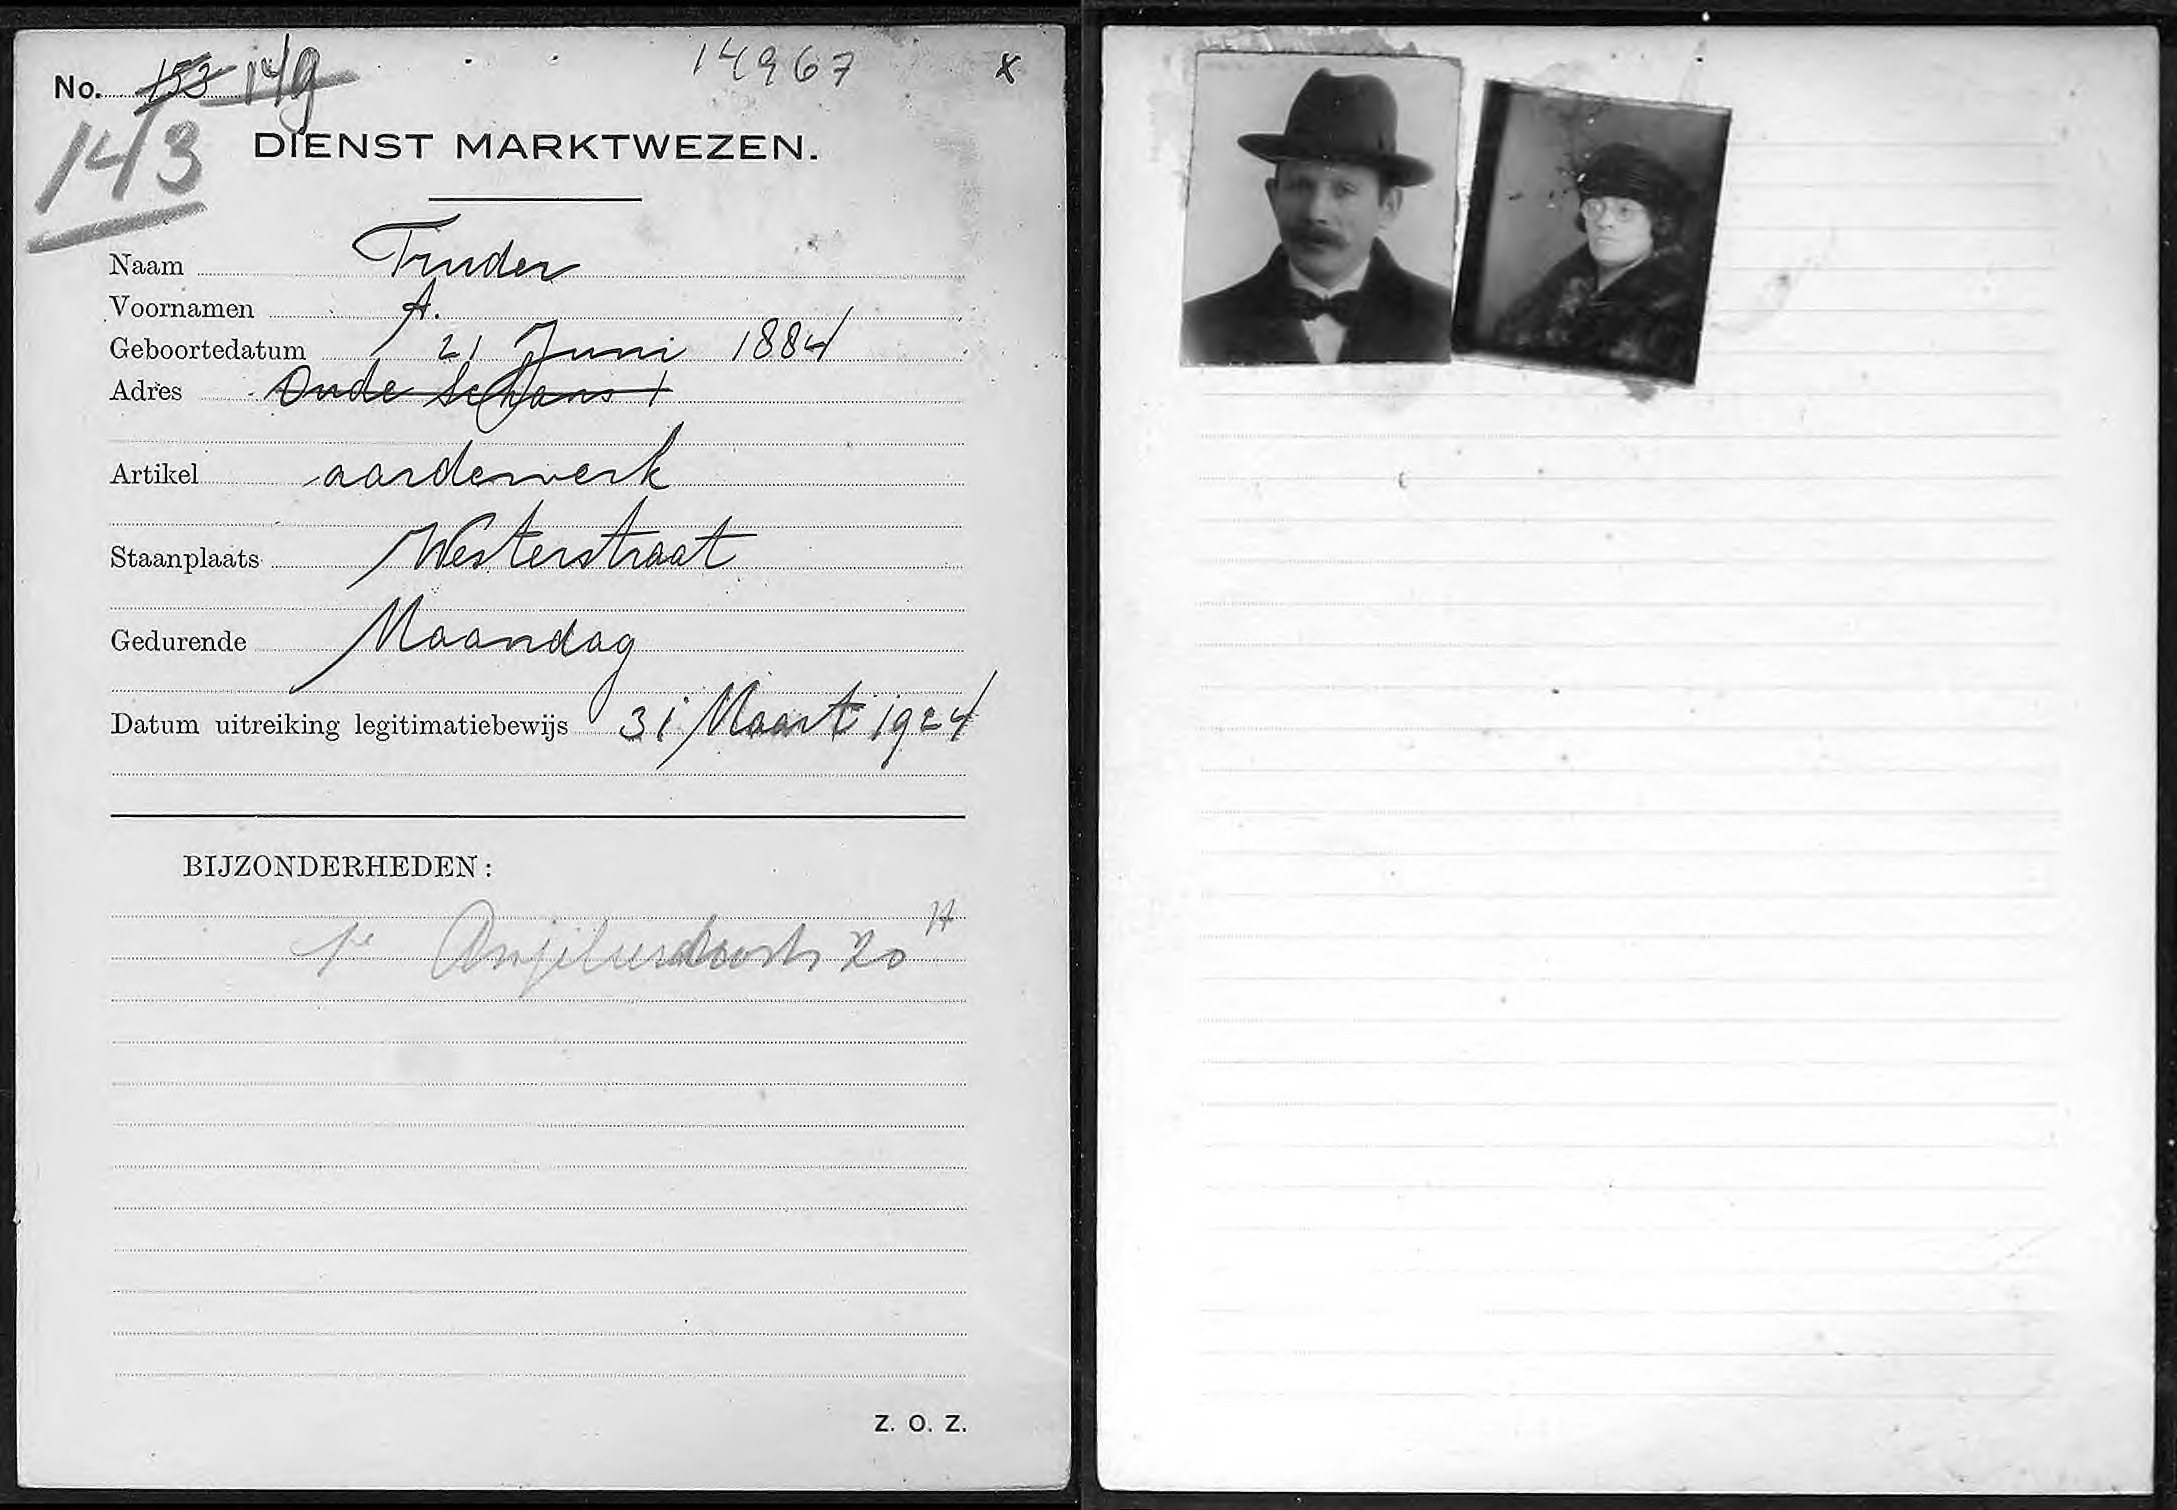 14967 x
No. 153 149
143
DIENST MARKTWEZEN.
Naam Truder
Voornamen A.
Geboortedatum 21 Juni 1884
Adres Oude Schans 1
Artikel aardewerk
Staanplaats Westerstraat
Gedurende Maandag
Datum uitreiking legitimatiebewijs 31 Maart 1924
BIJZONDERHEDEN:
1e 20 H
Z. O. Z.